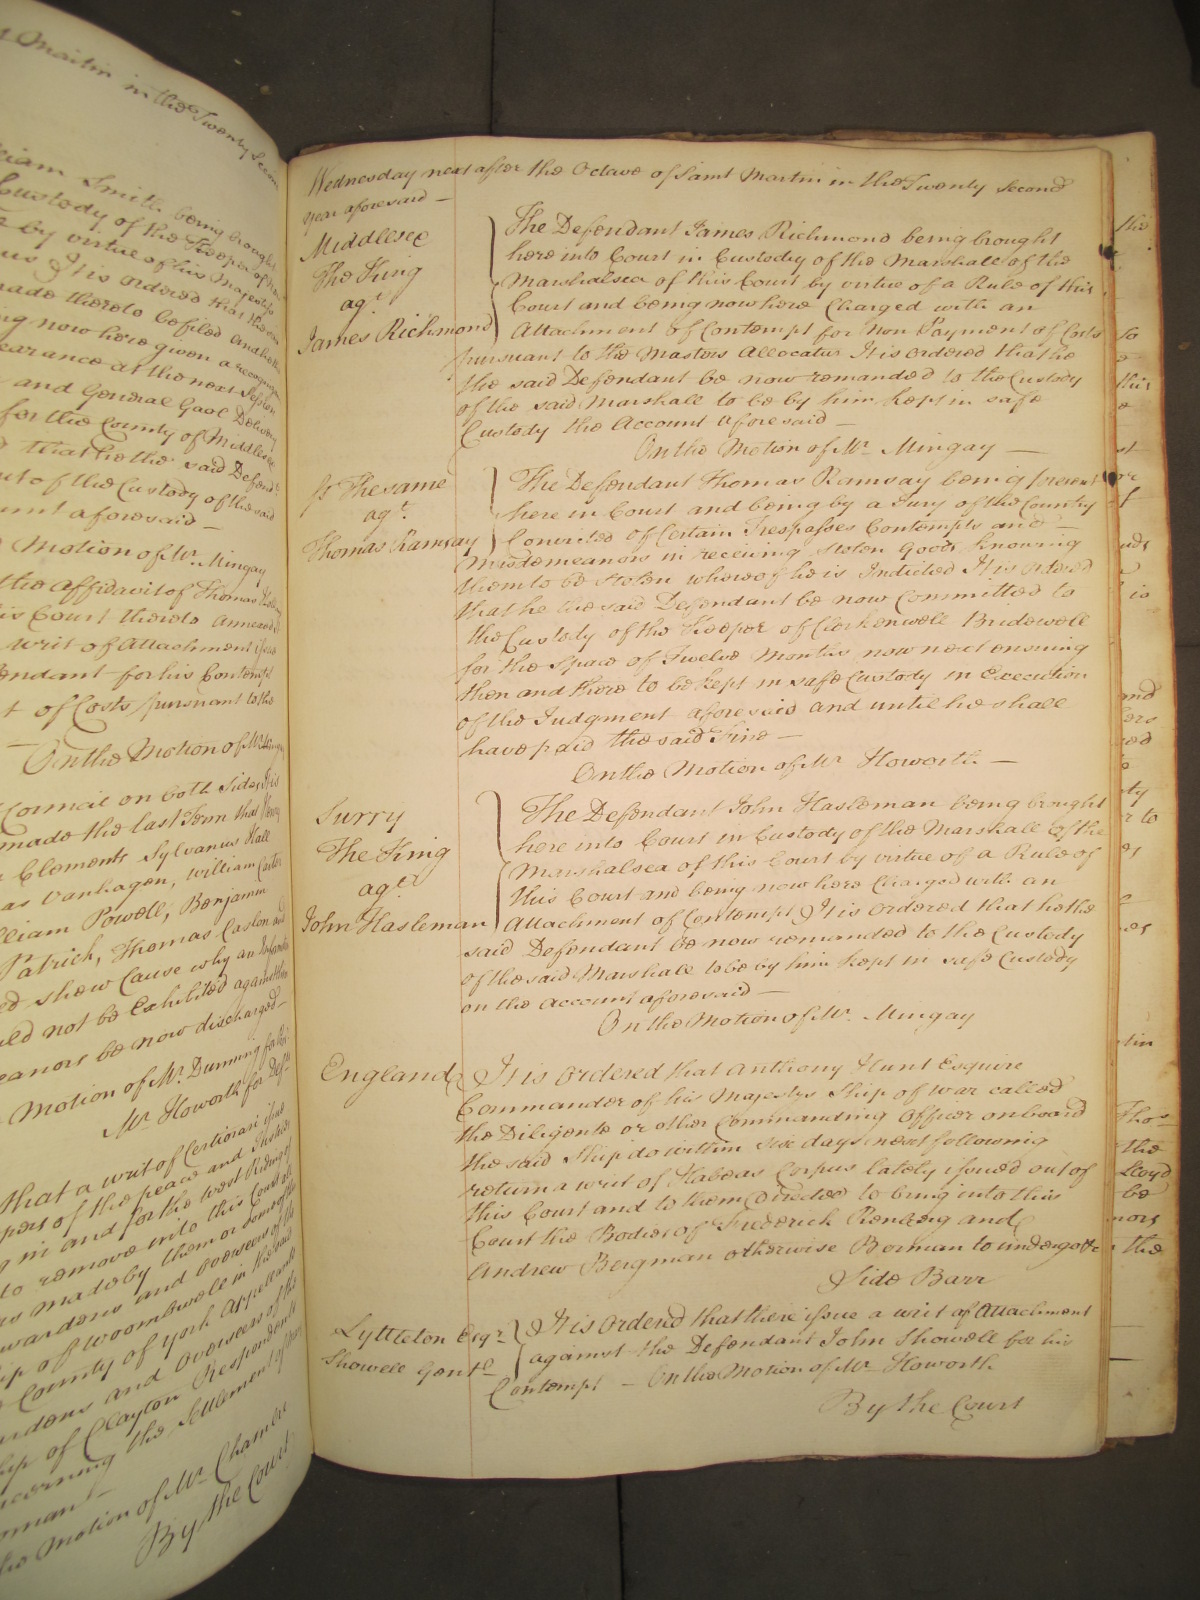 s Martin in the Twenty Second
William Smith being brought
Custody of the Keeper of
by virtue of his Majestys
It is ordered that the
made thereto be filed and
now here given a recognizance
appearance at the next Session
and General Gaol Delivery
for the County of Middlesex
that he the said Defendt
out of the Custody of the said
aforesaid
Motion of Mr. Mingay
the affidavit of Thomas
this Court thereto annexed
writ of Attachment issue
Defendant for his Contempt
of Costs pursuant to the
On the Motion of Mr. Mingay
Council on both Sides
made the last Term that Henry
Clements Sylvanus Hall
Vanhagen, William Carter
William Powell, Benjamin
Patrick, Thomas Caslon and
shew Cause why an Information
should not be Exhibited against them
be now discharged
Motion of Mr. Dunning for
Mr. Howorth for Deft
that a writ of Certiorari issue
of the peace and Justices
in and for the West Riding of
to remove into this Court all
made by them or some of them
wardens and Overseers of the
of Woombwell in the said
County of York Appellants
and Overseers of the
of Clayton Respondents
concerning the Settlement of
Motion of Mr. Chambre
By the Court
Wednesday next after the Octave of Saint Martin in the Twenty Second
year aforesaid —
Middlesex
The King
agt.
James Richmond
The Defendant James Richmond being brought
here into Court in Custody of the Marshall of the
Marshalsea of this Court by virtue of a Rule of this
Court and being now here Charged with an
Attachment of Contempt for Non Payment of Costs
pursuant to the Masters Allocatur It is ordered that he
the said Defendant be now remanded to the Custody
of the said Marshall to be by him kept in safe
Custody the Account aforesaid —
On the Motion of Mr. Mingay —
The same
agt.
Thomas Ramsay
The Defendant Thomas Ramsay being present
here in Court and being by a Jury of the Country
Convicted of Certain Trespasses Contempts and —
Misdemeanors in receiving stolen Goods knowing
them to be stolen whereof he is Indicted It is ordered
that he the said Defendant be now Committed to
the Custody of the Keeper of Clerkenwell Bridewell
for the Space of Twelve Months now next ensuing
then and there to be kept in safe Custody in Execution
of the Judgment aforesaid and until he shall
have paid the said Fine —
On the Motion of Mr. Howorth —
Surry
The King
agt.
John Hasleman
The Defendant John Hasleman being brought
here into Court in Custody of the Marshall of the
Marshalsea of this Court by virtue of a Rule of
this Court and being now here Charged with an
Attachment of Contempt It is ordered that he the
said Defendant be now remanded to the Custody
of the said Marshall to be by him kept in safe Custody
on the Account aforesaid —
On the Motion of Mr. Mingay
England
It is ordered that Anthony Hunt Esquire
Commander of his Majestys Ship of War called
the Diligente or other Commanding Officer on board
the said Ship do within six days next following
return a writ of Habeas Corpus lately issued out of
this Court and to them directed to bring into this
Court the Bodies of Frederick Renberg and
Andrew Bergman otherwise Borman to undergo &c
Side Barr
Lyttleton Esqr.
Showell Gentl
It is ordered that there issue a writ of Attachment
against the Defendant John Showell for his
Contempt — On the Motion of Mr. Howorth
By the Court